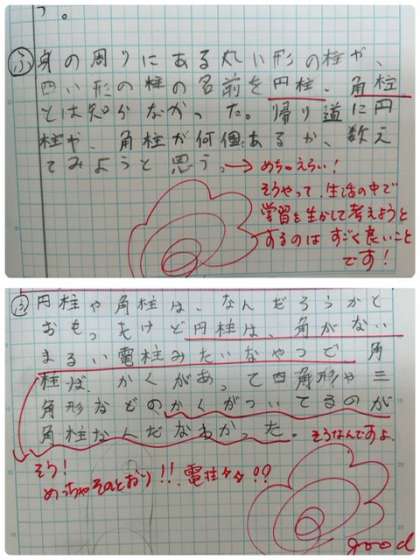 う。
ふ 身の周りにある丸い形の柱や、
四い形の柱の名前を円柱、角柱
とは知らなかった。帰り道に円
柱や、角柱が何個あるか、数え
てみようと思う。→めちゃえらい!
そうやって生活の中で
学習を生かして考えようと
するのはすごく良いこと
です!
ふ 円柱や角柱は、なんだろうかと
おもったけど円柱は、角がない
まるい電柱みたいなやつで角
柱は、かくがあって四角形や三
角形などのかくがついてるのが
角柱なんだなあかった。そうなんですよ。
そう!
めっちゃそのとおり!!電柱
good